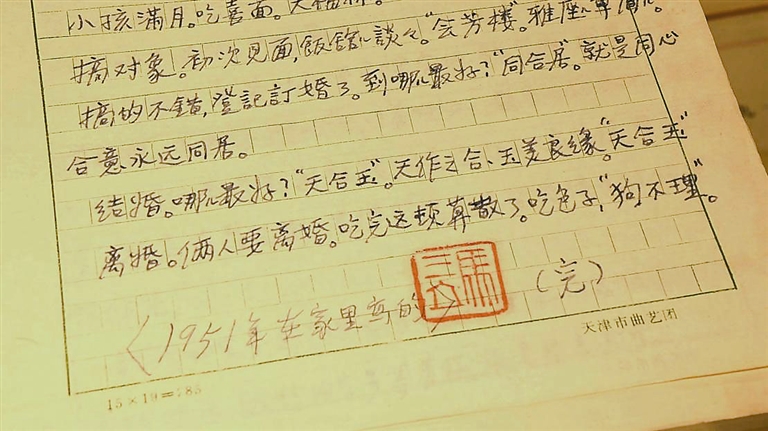 小孩满月。吃喜面。天
搞对象。初次见面,飯館儿談々。“会芳楼”。雅座儿单间儿。
搞的不錯,登記訂婚了。到哪儿最好?“同合居”。就是同心
合意永远同居。
结婚。哪儿最好?“天合玉”。天作之合、玉美良缘。“天合玉”
离婚。俩人要离婚。吃完这顿算散了。吃包子,“狗不理”。
(完)
〈1951年在家里写的〉
天津市曲艺团
15×19=285